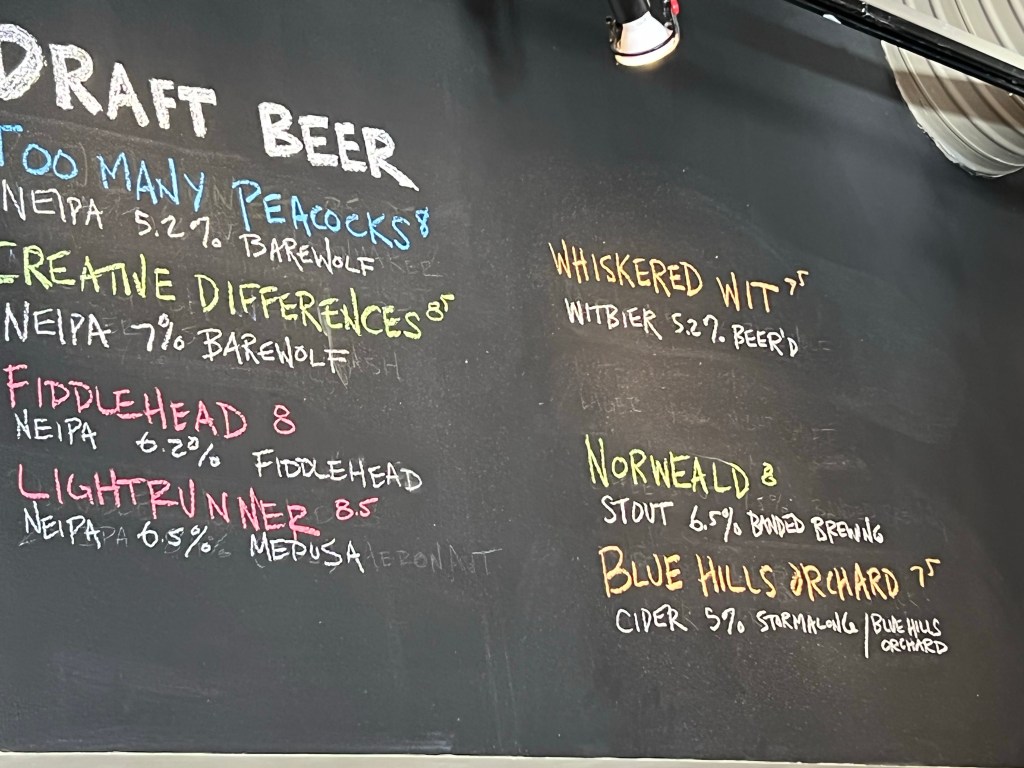 DRAFT BEER
TOO MANY PEACOCKS 8
NEIPA 5.2% BAREWOLF
CREATIVE DIFFERENCES 85
NEIPA 7% BAREWOLF
FIDDLEHEAD 8
NEIPA 6.2% FIDDLEHEAD
LIGHTRUNNER 8.5
NEIPA 6.5% MEDUSA
WHISKERED WIT 75
WITBIER 5.2% BEER'D
NORWEALD 8
STOUT 6.5% BANDED BREWING
BLUE HILLS ORCHARD 75
CIDER 5% STORMALONG / BLUE HILLS
ORCHARD